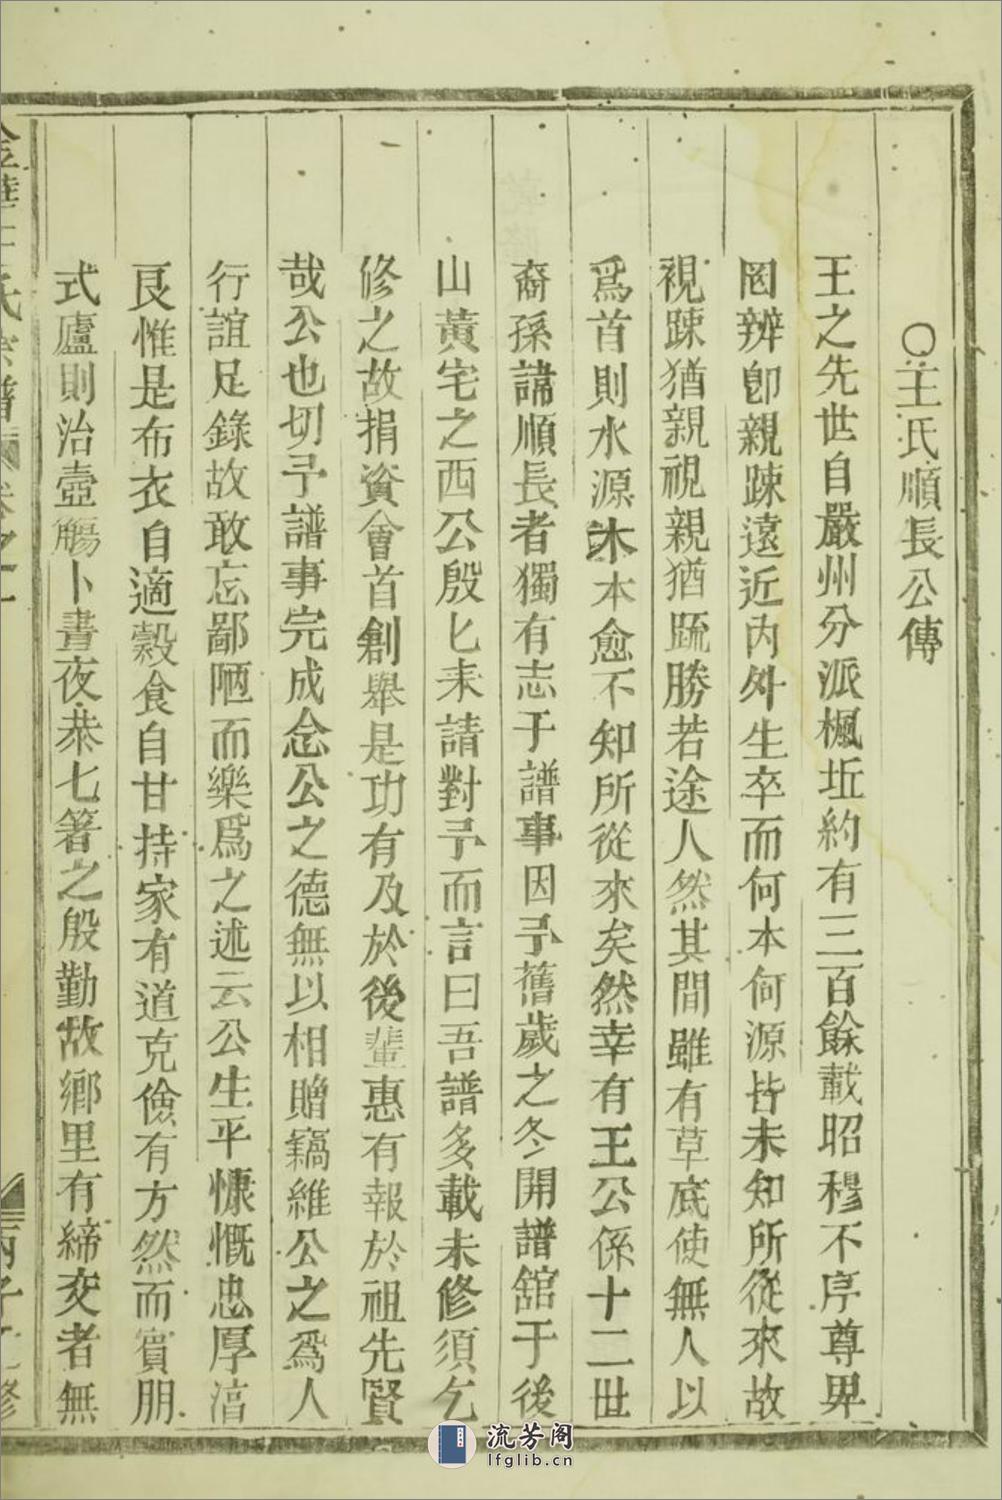 ○王氏順長公傳
王之先世自嚴州分派楓坵約有三百餘載昭穆不序尊卑
罔辨卽親踈遠近內外生卒而何本何源皆未知所從來故
視踈猶親視親猶䟽勝若途人然其間雖有草底使無人以
爲首則水源木本愈不知所從來矣然幸有王公係十二世
裔孫諱順長者獨有志于譜事因予舊歲之冬開譜舘于後
山黃宅之西公殷匕来請對予而言曰吾譜多載未修須乞
修之故捐資會首創舉是功有及於後輩惠有報於祖先賢
哉公也切予譜事完成念公之德無以相贈竊維公之爲人
行誼足錄故敢忘鄙陋而樂爲之述云公生平慷慨忠厚湻
良惟是布衣自適榖食自甘持家有道克儉有方然而賓朋
式廬則治壺觴卜晝夜恭七箸之殷勤故鄉里有締交者無
金華王氏宗譜 卷之一 丙子 修
流芳阁
lfglib.cn